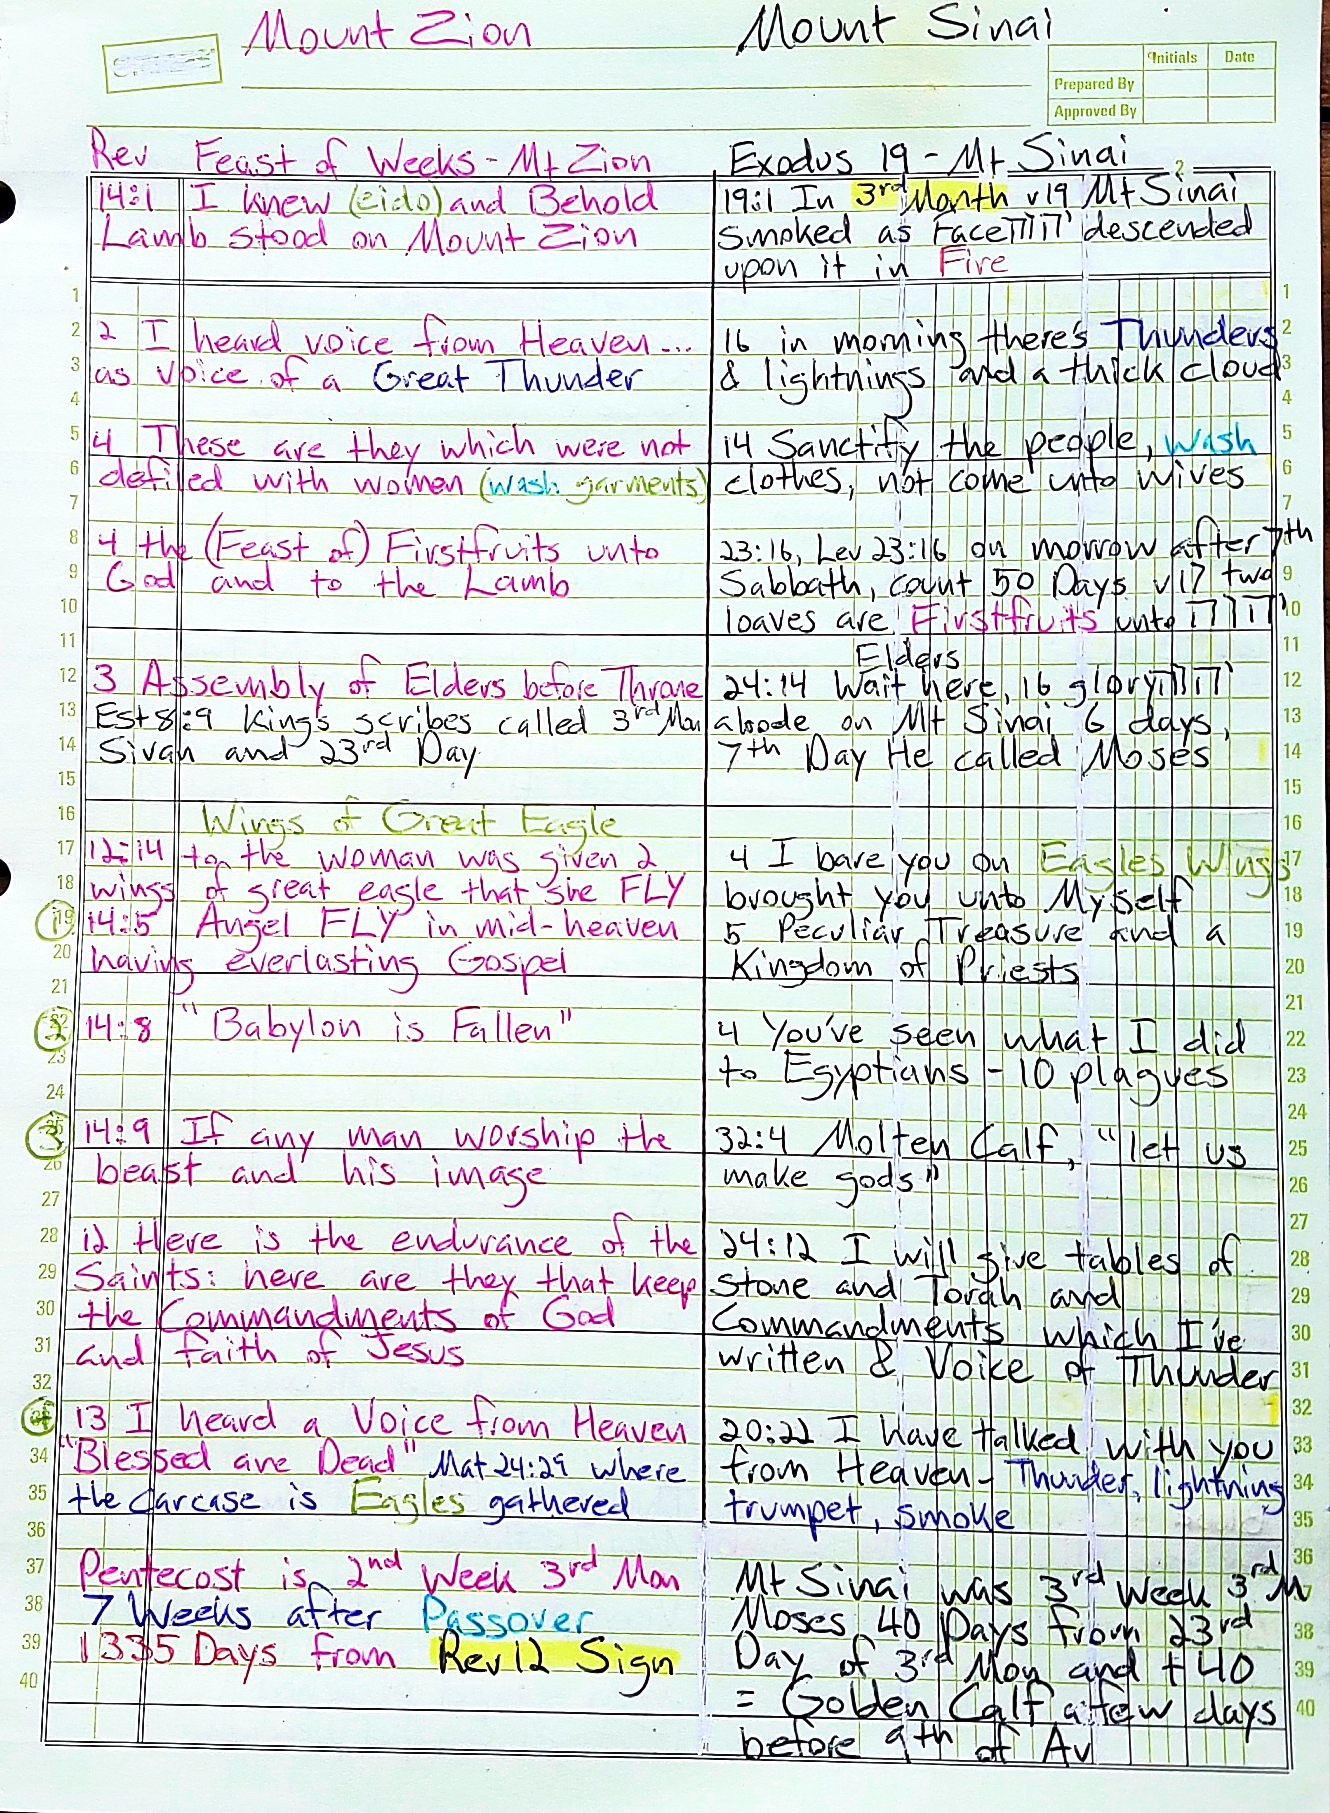 Mount Zion
Mount Sinai
Initials Date
Prepared By
Approved By
Rev Feast of Weeks - Mt Zion
14:1 I knew (eido) and Behold
Lamb stood on Mount Zion
2 I heard voice from Heaven...
as voice of a Great Thunder
4 These are they which were not
defiled with women (wash garments)
4 the (Feast of) Firstfruits unto
God and to the Lamb
3 Assembly of Elders before Throne
Est 8:9 King's scribes called 3rd Mon
Sivan and 23rd Day
Wings of Great Eagle
12:14 to the woman was given 2
wings of great eagle that she FLY
1 14:5 Angel FLY in mid-heaven
having everlasting Gospel
2 14:8 "Babylon is Fallen"
3 14:9 If any man worship the
beast and his image
12 Here is the endurance of the
Saints: here are they that keep
the Commandments of God
and faith of Jesus
13 I heard a Voice from Heaven
"Blessed are Dead" Mat 24:29 where
the carcase is Eagles gathered
Pentecost is 2nd Week 3rd Mon
7 Weeks after Passover
1335 Days from Rev 12 Sign
Exodus 19 - Mt Sinai
2
19:1 In 3rd Month v19 Mt Sinai
smoked as Face יהוה descended
upon it in Fire
16 in morning there's Thunders
& lightnings and a thick cloud
14 Sanctify the people, wash
clothes, not come unto wives
23:16, Lev 23:16 on morrow after 7th
Sabbath, count 50 Days v17 two
loaves are Firstfruits unto יהוה
Elders
24:14 Wait here, 16 glory יהוה
abode on Mt Sinai 6 days,
7th Day He called Moses
4 I bare you on Eagles Wings
brought you unto Myself
5 Peculiar Treasure and a
Kingdom of Priests
4 You've seen what I did
to Egyptians - 10 plagues
32:4 Molten Calf, "let us
make gods"
24:12 I will give tables of
stone and Torah and
Commandments which I've
written & Voice of Thunder
20:22 I have talked with you
from Heaven - Thunder, lightning
trumpet, smoke
Mt Sinai was 3rd Week 3rd M
Moses 40 Days from 23rd
Day of 3rd Mon and + 40
= Golden Calf a few days
before 9th of Av
1
2
3
4
5
6
7
8
9
10
11
12
13
14
15
16
17
18
19
20
21
23
24
26
27
28
29
30
31
32
34
35
36
37
38
39
40
1
2
3
4
5
6
7
9
10
11
12
13
14
15
16
17
18
19
20
21
22
23
24
25
26
27
28
29
30
31
32
33
34
35
36
38
39
40